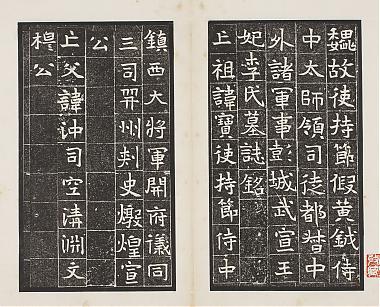 魏故使持節假黄鉞侍
中太師領司徒都督中
外諸軍事彭城武宣王
妃李氏墓誌銘
亡祖諱寶使持節侍中
鎮西大將軍開府儀同
三司并州刺史燉煌宣
公
亡父諱沖司空清淵文
穆公